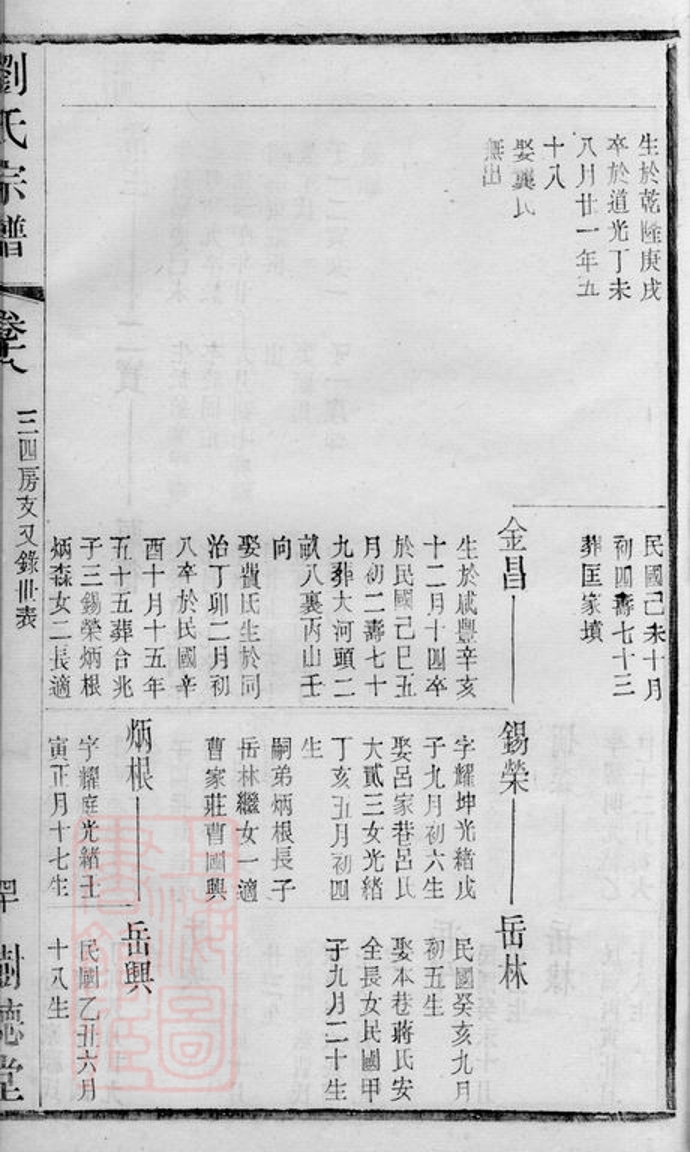 生於乾隆庚戌
卒於道光丁未
八月廿一年五
十八
娶龔氏
無出
民國己未十月
初四壽七十三
葬匡家墳
金昌
生於咸豐辛亥
十二月十四卒
於民國己巳五
月初二壽七十
九葬大河頭二
畝八裏丙山壬
向
娶費氏生於同
治丁卯二月初
八卒於民國辛
酉十月十五年
五十五葬合兆
子三錫榮炳根
炳森女二長適
錫榮
字耀坤光緒戊
子九月初六生
娶呂家巷呂氏
大貳三女光緒
丁亥五月初四
生
嗣弟炳根長子
岳林繼女一適
曹家莊曹國興
炳根
字耀庭光緒壬
寅正月十七生
岳林
民國癸亥九月
初五生
娶本巷蔣氏安
全長女民國甲
子九月二十生
岳興
民國乙丑六月
十八生
劉氏宗譜
卷十八
三四房支又錄世表
樹德堂